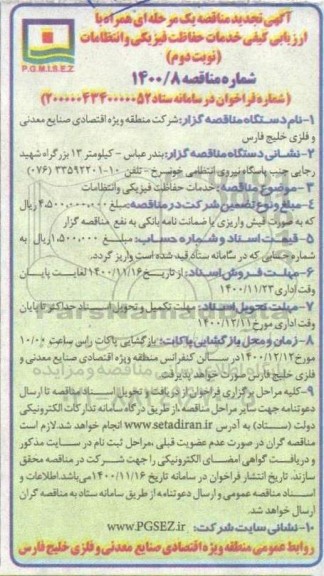 آگهی تجدید مناقصه یک مرحله ای همراه با
ارزیابی کیفی خدمات حفاظت فیزیکی و انتظامات
(نوبت دوم)
P.G.M.I.S.E.Z
شماره مناقصه ۱۴۰۰/۸
(شماره فراخوان در سامانه ستاد ۲۰۰۰۰۰۴۳۴۰۰۰۰۰۵۲)
۱-نام دستگاه مناقصه گزار: شرکت منطقه ویژه اقتصادی صنایع معدنی
و فلزی خلیج فارس
۲-نشانی دستگاه مناقصه گزار: بندرعباس - کیلومتر ۱۳ بزرگراه شهید
رجایی جنب پاسگاه نیروی انتظامی خونسرخ - تلفن ۱۰-۳۳۵۹۲۲۰۱ (۰۷۶)
۳-موضوع مناقصه: خدمات حفاظت فیزیکی و انتظامات
۴-مبلغ و نوع تضمین شرکت در مناقصه: مبلغ ۴,۵۰۰,۰۰۰,۰۰۰ ریال
که به صورت فیش واریزی یا ضمانت نامه بانکی به نفع مناقصه گزار
۵-قیمت اسناد و شماره حساب: مبلغ ۱,۵۰۰,۰۰۰ ریال به
شماره حسابی که در سامانه ستاد قید شده است واریز گردد.
۶-مهلت فروش اسناد: از تاریخ ۱۴۰۰/۱۱/۱۶ لغایت پایان
وقت اداری ۱۴۰۰/۱۱/۲۳
۷-مهلت تحویل اسناد: مهلت تکمیل و تحویل اسناد حداکثر تا پایان
وقت اداری مورخ ۱۴۰۰/۱۲/۱۱
۸-زمان و محل بازگشایی پاکات: بازگشایی پاکات راس ساعت ۱۰/۰۰
مورخ ۱۴۰۰/۱۲/۱۲ در سالن کنفرانس منطقه ویژه اقتصادی صنایع معدنی و
فلزی خلیج فارس صورت خواهد پذیرفت.
۹-کلیه مراحل برگزاری فراخوان از دریافت و تحویل اسناد مناقصه تا ارسال
دعوتنامه جهت سایر مراحل مناقصه، از طریق درگاه سامانه تدارکات الکترونیکی
دولت (ستاد) به آدرس www.setadiran.ir انجام خواهد شد. لازم است
مناقصه گران در صورت عدم عضویت قبلی، مراحل ثبت نام در سایت مذکور
و دریافت گواهی امضای الکترونیکی را جهت شرکت در مناقصه محقق
سازند. تاریخ انتشار فراخوان در سامانه تاریخ ۱۴۰۰/۱۱/۱۶ می‌باشد. اطلاعات و
اسناد مناقصه عمومی و ارسال دعوتنامه از طریق سامانه ستاد به مناقصه گران
ارسال خواهد شد.
۱۰-نشانی سایت شرکت: www.PGSEZ.ir
روابط عمومی منطقه ویژه اقتصادی صنایع معدنی و فلزی خلیج فارس